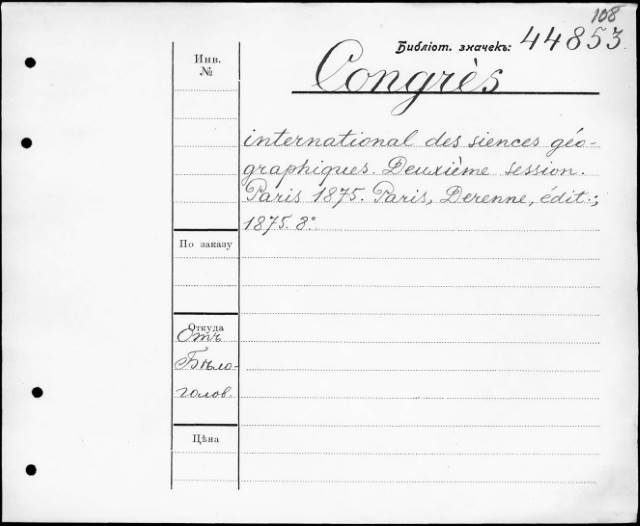 108
Библіот. значекъ: 44853.
Инв.
№
Congrès
international des siences géo-
graphiques. Deuxième session.
Paris 1875. Paris, Derenne, édit.;
1875. 8°.
По заказу
Откуда
Отъ
Бѣло-
голов.
Цѣна